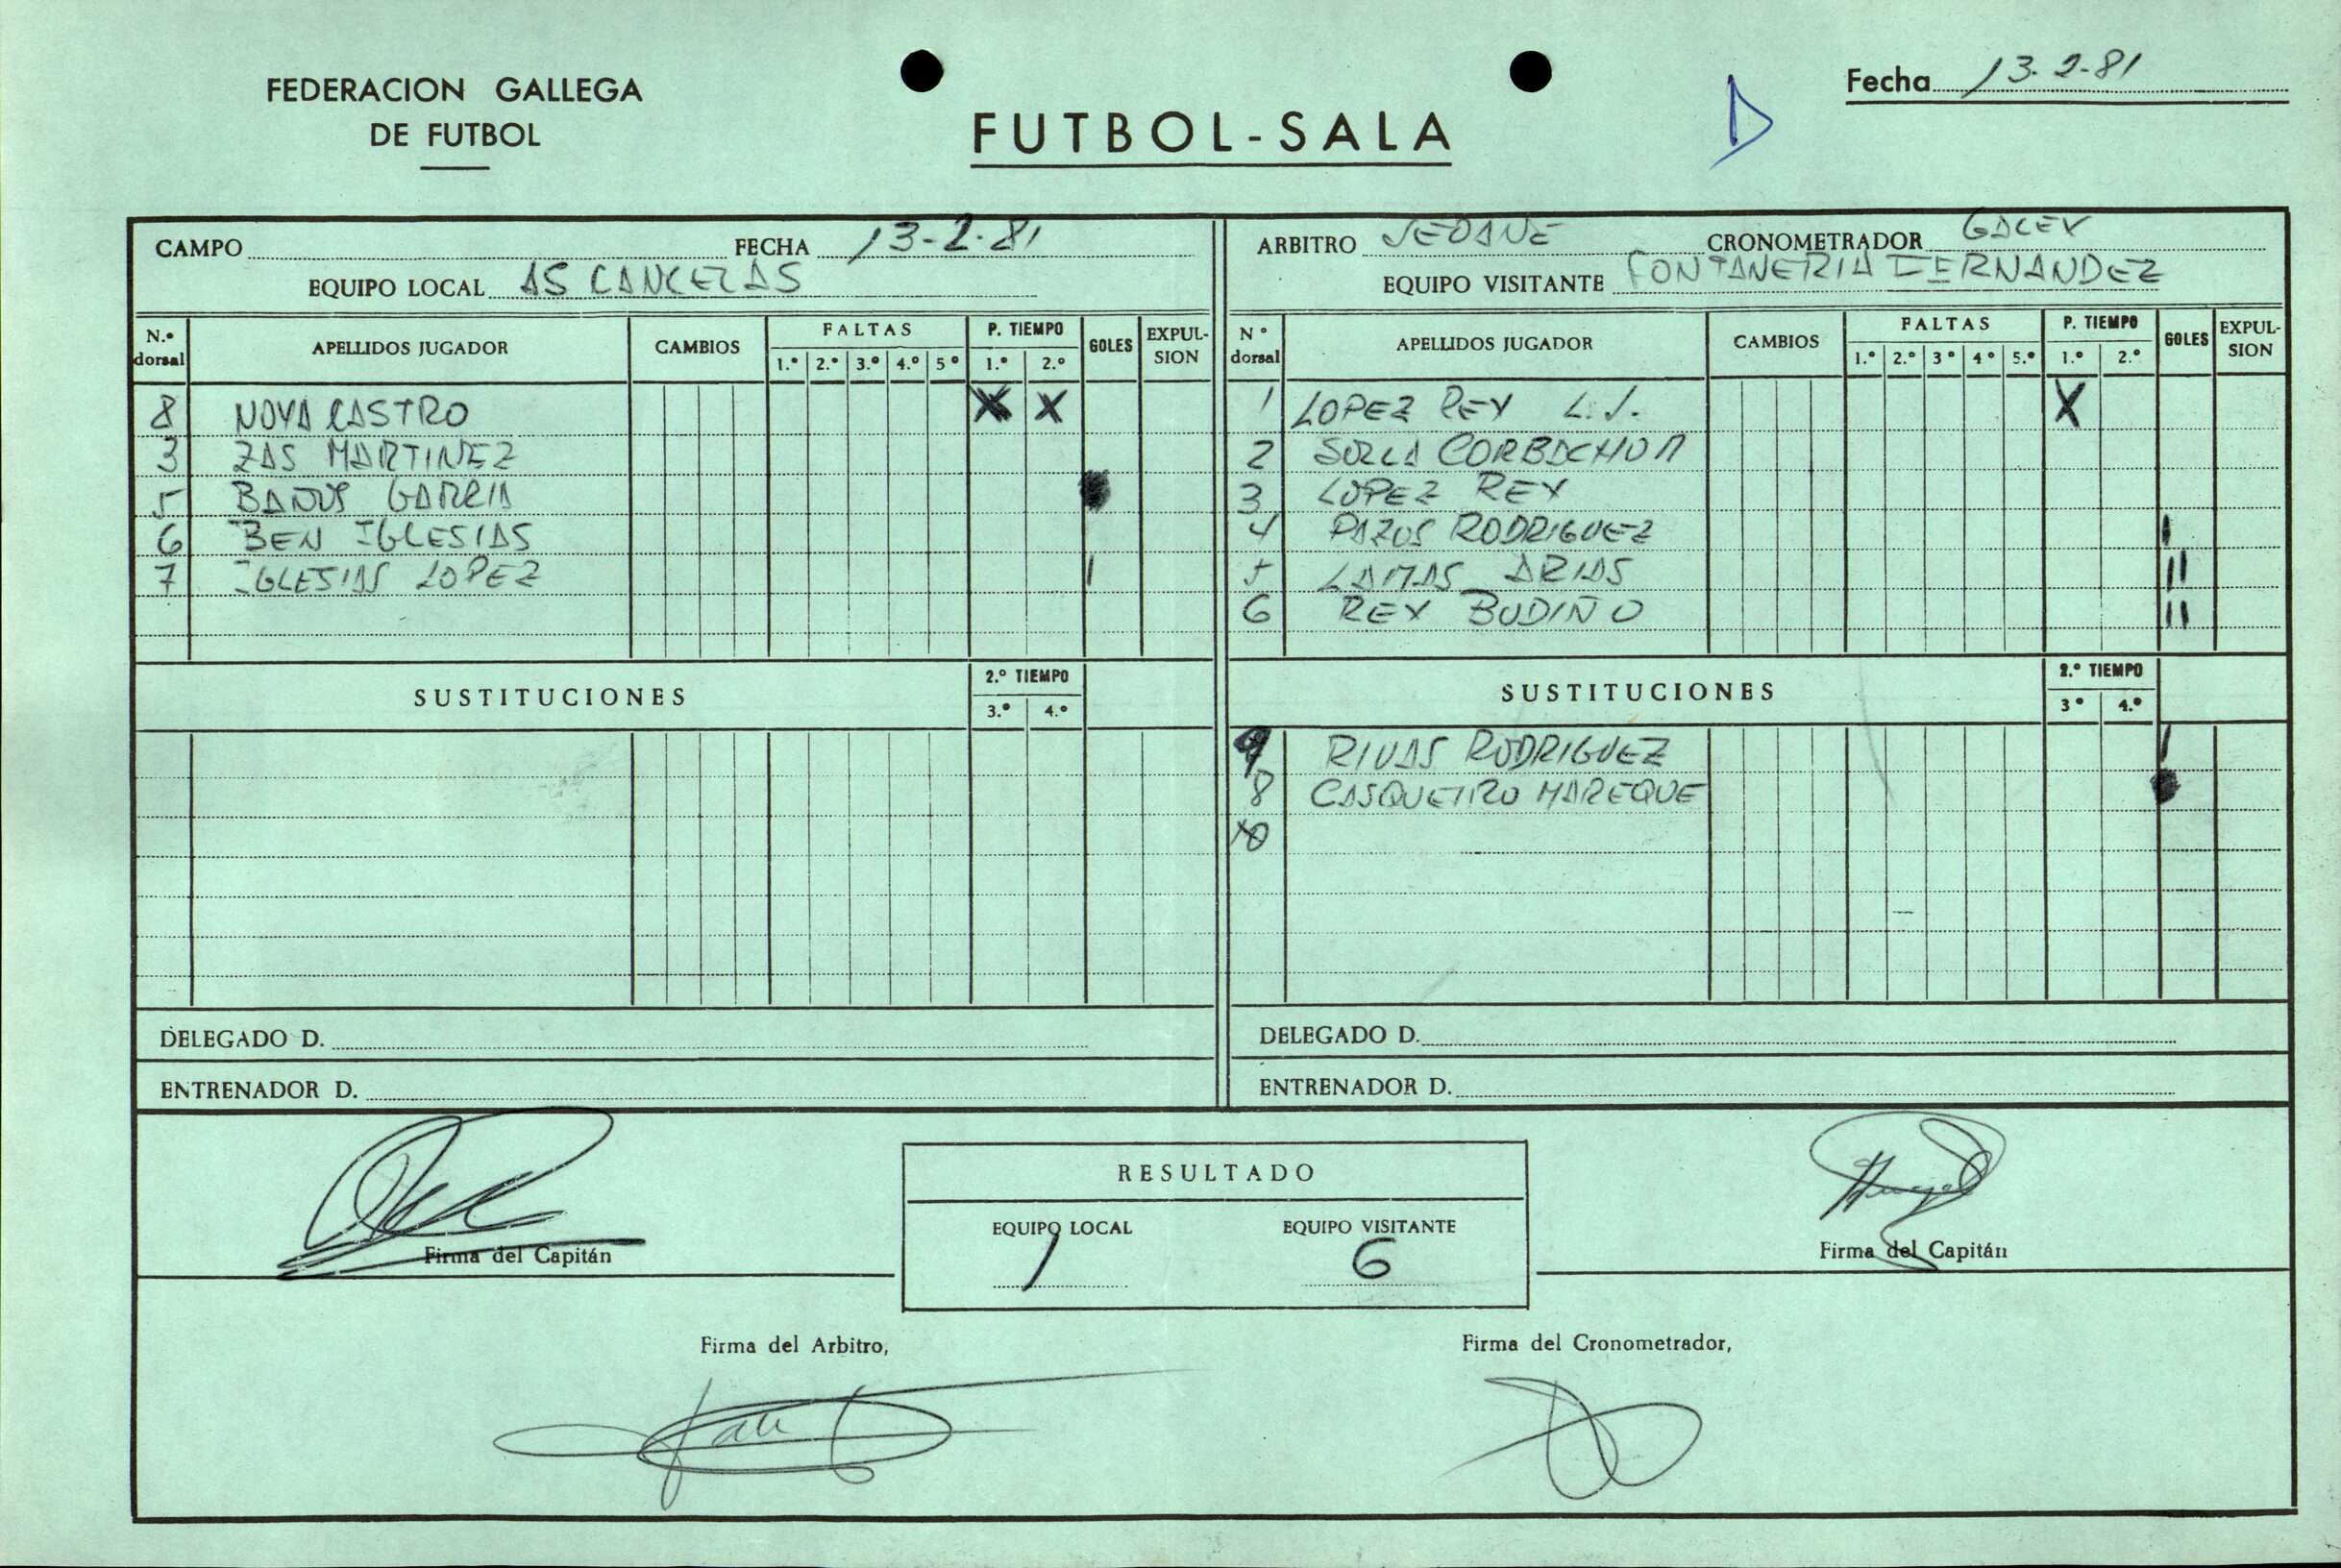 FEDERACION GALLEGA
DE FUTBOL
FUTBOL-SALA
Fecha 13-2-81
CAMPO FECHA 13-2-81
EQUIPO LOCAL AS CANCELAS
N.º dorsal APELLIDOS JUGADOR CAMBIOS FALTAS 1.º 2.º 3.º 4.º 5º P. TIEMPO 1.º 2.º GOLES EXPULSION
8 NOYA CASTRO X X
3 ZAS MARTINEZ
5 GARCIA
6 BEN IGLESIAS
7 IGLESIAS LOPEZ I
SUSTITUCIONES 2.º TIEMPO 3.º 4.º
DELEGADO D.
ENTRENADOR D.
ARBITRO SEOANE CRONOMETRADOR
EQUIPO VISITANTE FONTANERIA FERNANDEZ
Nº dorsal APELLIDOS JUGADOR CAMBIOS FALTAS 1.º 2.º 3º 4º 5.º P. TIEMPO 1.º 2.º GOLES EXPULSION
1 LOPEZ REY L.J. X
2 CORBACHO M
3 LOPEZ REY
4 PAZOS RODRIGUEZ I
5 LAMAS ARIAS II
6 REY BUDIÑO II
SUSTITUCIONES 2.º TIEMPO 3º 4.º
9 RIVAS RODRIGUEZ I
8 CASQUEIRO MAREQUE
10
DELEGADO D.
ENTRENADOR D.
Firma del Capitán
RESULTADO
EQUIPO LOCAL EQUIPO VISITANTE
1 6
Firma del Capitán
Firma del Arbitro, Firma del Cronometrador,